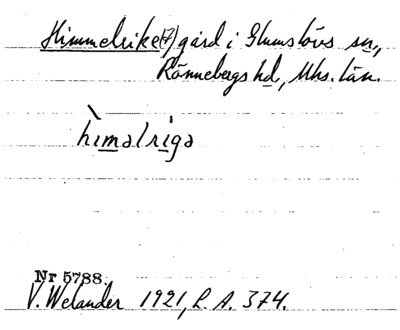 Himmelrike(t) gård i Glumslövs sn,
Rönnebergs hd, Mhs. län.
hìmalríga
Nr 5788.
V. Welander 1921, L. A. 374.